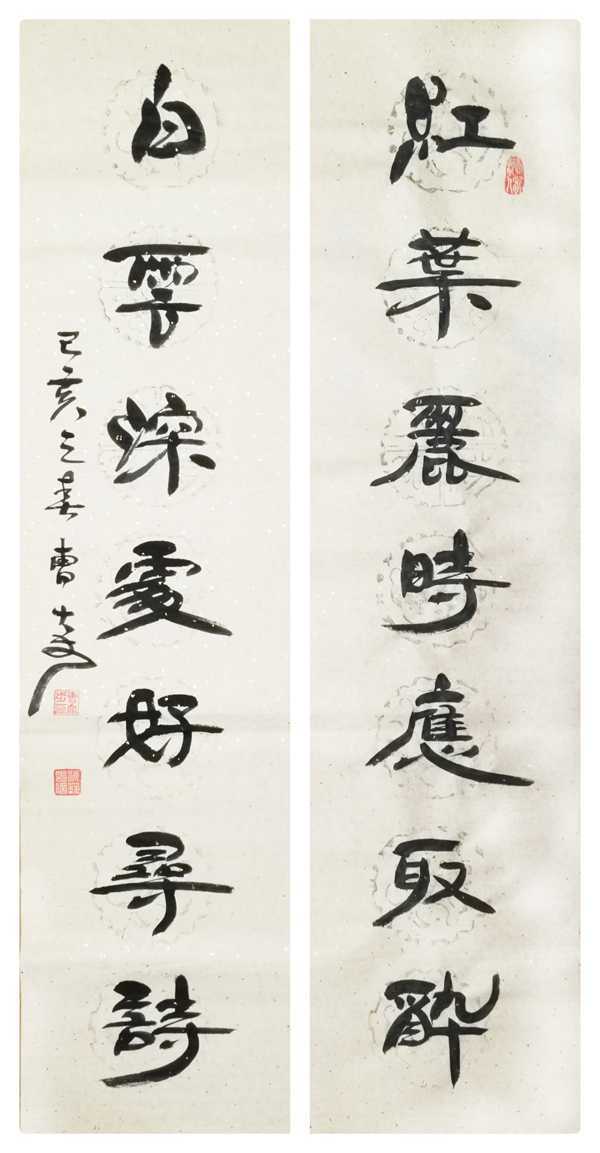 紅葉麗時應取醉
白雲深處好尋詩
己亥之春曹